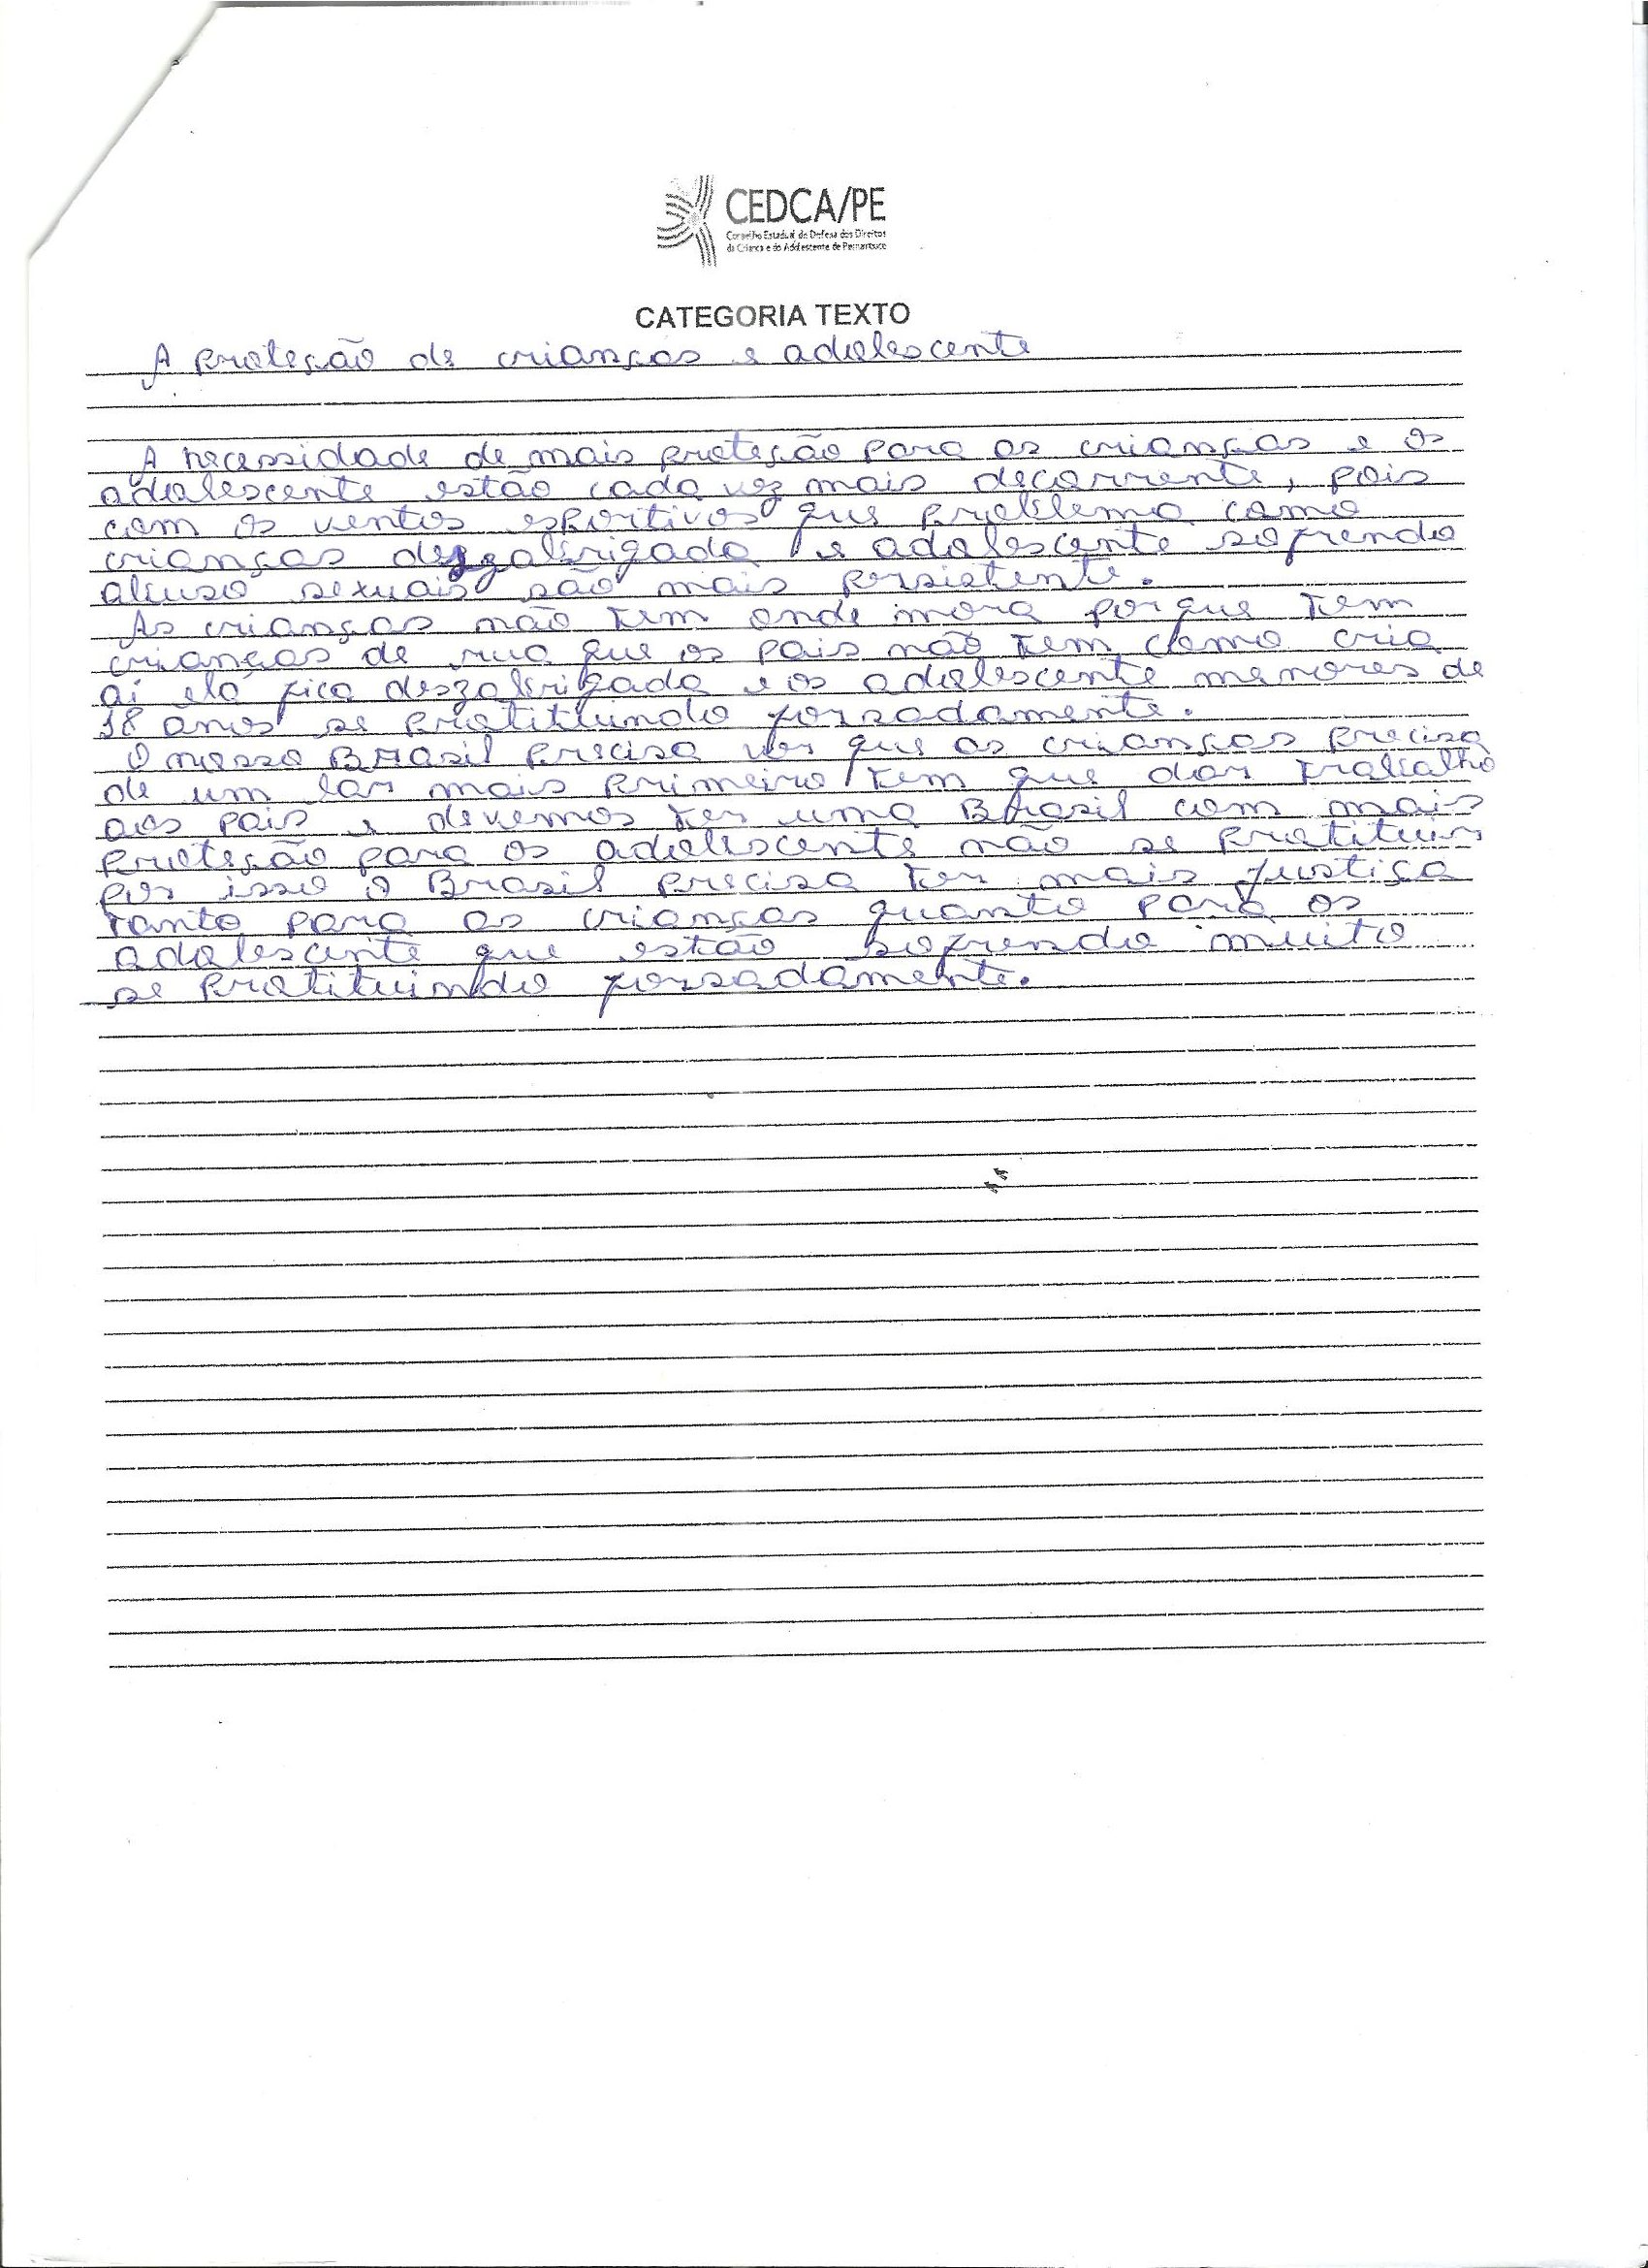 CEDCA/PE
Conselho Estadual de Defesa dos Direitos
da Criança e do Adolescente de Pernambuco
CATEGORIA TEXTO
A proteção de crianças e adolescente
A necessidade de mais proteção para as crianças e os
adolescente estão cada vez mais decorrente, pois
com os ventos esportivos que problema como
crianças dezgabrigada e adolescente sofrendo
abuso sexuais são mais persistente.
As crianças não tem onde mora porque tem
crianças de rua que os pais não tem como cria
aí ela fica deszabrigada e os adolescente menores de
18 anos se protituindo forssadamente.
O nosso Brasil precisa ver que as crianças precisa
de um lar mais primeiro tem que dar trabalho
aos pais e devemos ter uma Brasil com mais
proteção para os adolescente não se protituir
por isso o Brasil precisa ter mais justiça
tanto para as crianças quanto para os
adolescente que estão sofrendo muito
se protituindo forssadamente.